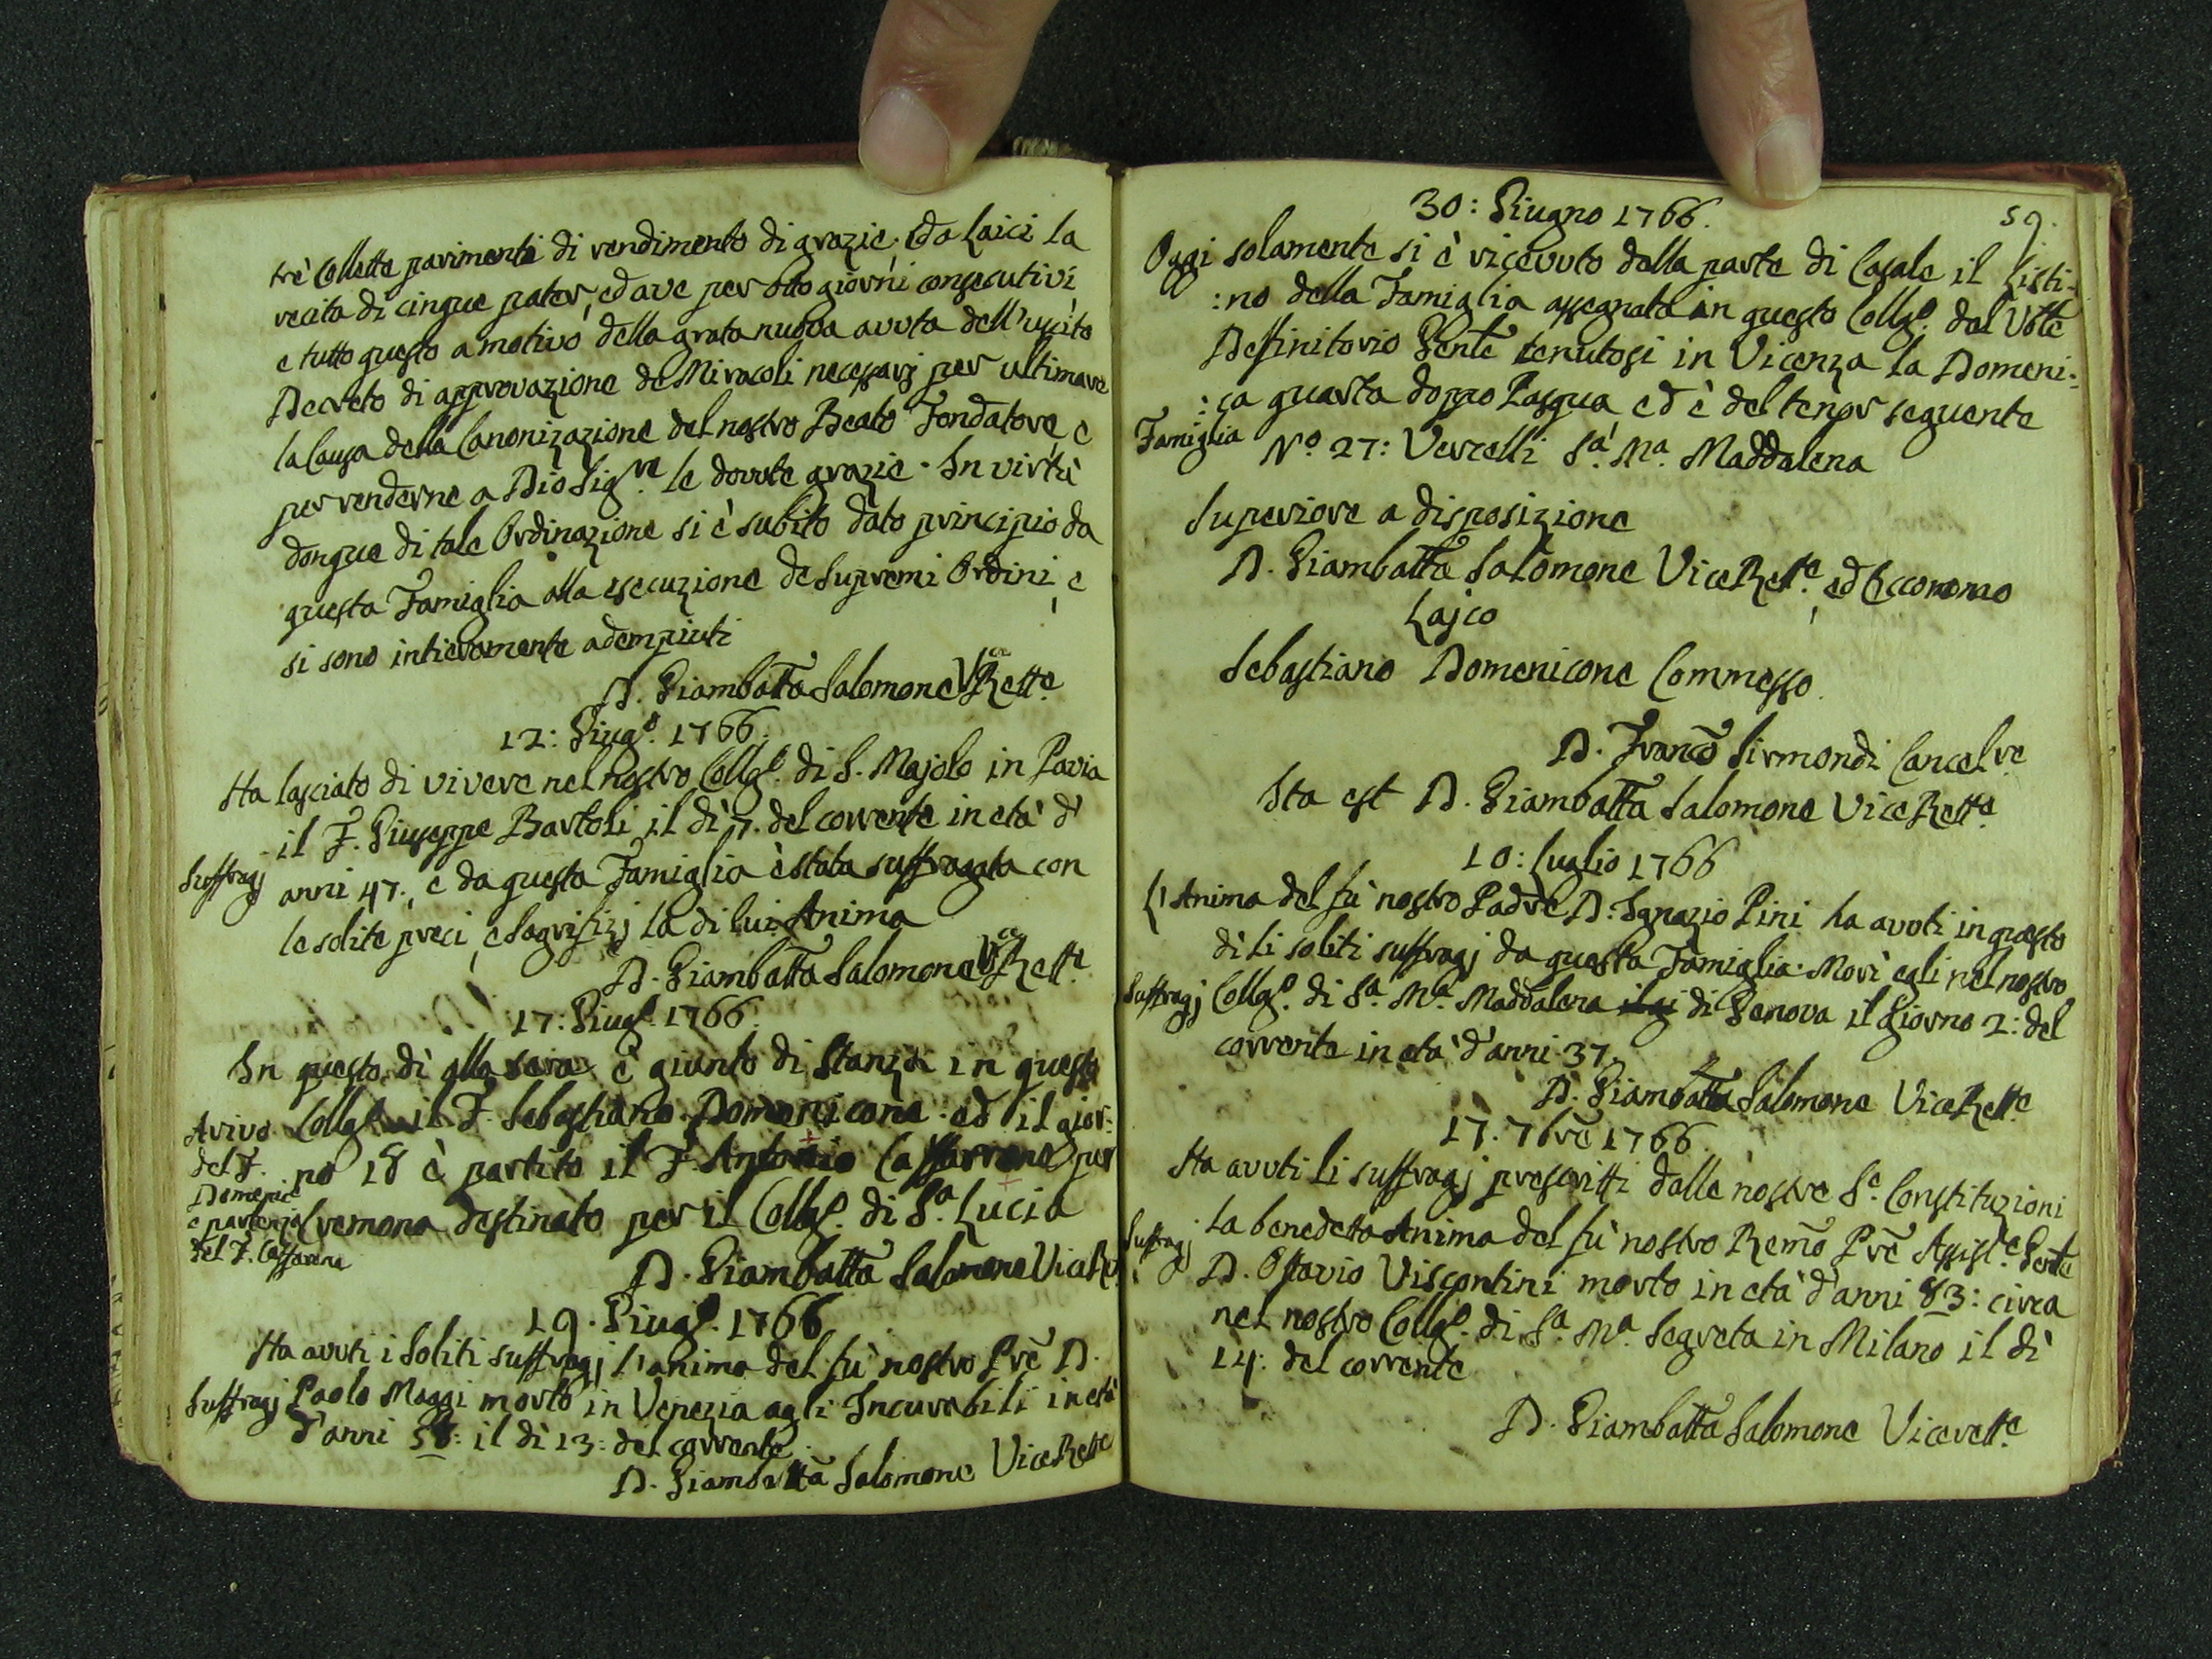 trè Collette parimenti di rendimento di grazie; e da Laici la
recita di cinque pater, ed ave per otto giorni consecutivi
e tutto questo a motivo della grata nuova avuta dell'uscito
Decreto di approvazione de Miracoli necessarj per ultimare
la Causa della Canonizazione del nostro Beato Fondatore, e
per renderne a Dio Sig.re le dovute grazie. In virtù
donque di tale Ordinazione si è subito dato principio da
questa Famiglia alla esecuzione de Supremi Ordini, e
si sono intieramente adempiuti
D. Giambatta Salomone Vce Rette
12: Giugo. 1766.
Ha lasciato di vivere nel nostro Collgo. di S. Majolo in Pavia
il F. Giuseppe Bartoli il dì 7. del corrente in età d'
Suffragj anni 47., e da questa Famiglia è stata suffragata con
le solite preci, e Sagrifizj la di lui Anima
D. Giambatta Salomone Vce Rette
17: Giugo. 1766.
In questo dì alla sera è giunto di Stanza in questo
Collgo. il F. Sebastiano Domenicone. ed il gior:
no 18 è partito il F. Antonio Caffarrena per
Cremona destinato per il Collgo. di Sa. Lucia
Arivo
del F.
Domenic
e partenza
del F. Caffarena
D. Giambatta Salomone Vice Re
19. Giugo. 1766
Ha avuti i soliti suffragj l'anima del fù nostro Pre D.
Suffragj Paolo Maggi morto in Venezia agli Incurabili in età
d'anni 58: il dì 13: del corrente
D. Giambatta Salomone Vice Rette
59.
30: Giugno 1766.
Oggi solamente si è ricevuto della parte di Casale il Listi:
:no della Famiglia assegnata in questo Collgo. dal
Deffinitorio Gente tenutosi in Vicenza la Domeni:
:ca quarta doppo Pasqua ed è del tenor seguente
Famiglia No. 27: Vercelli Sa. Ma. Maddalena
Superiore a disposizione
D. Giambatta Salomone Vice Rette, ed Ecconomo
Lajco
Sebastiano Domenicone Commesso.
D. Franco Sirmondi Cancelre
Ita est D. Giambatta Salomone Vice Rette
10: Luglio 1766
L'Anima del fù nostro Padre D: Ignazio Pini ha avuti in questo
dì li soliti suffragj da questa Famiglia. Morì egli nel nostro
Suffragj Collgo. di Sa. Ma. Maddalena di Genova il Giorno 2: del
corrente in età d'anni 37.
D. Giambatta Salomone Vice Rette
17. 7bre 1766
Ha avuti li suffragj prescritti dalle nostre Se. Constituzioni
Suffragj la benedetta Anima del fù nostro Remo Pre Assiste Gente
D. Ottavio Viscontini morto in età d'anni 83: circa
nel nostro Collgo. di Sa. Ma. Segreta in Milano il dì
14: del corrente
D. Giambatta Salomone Vicerette